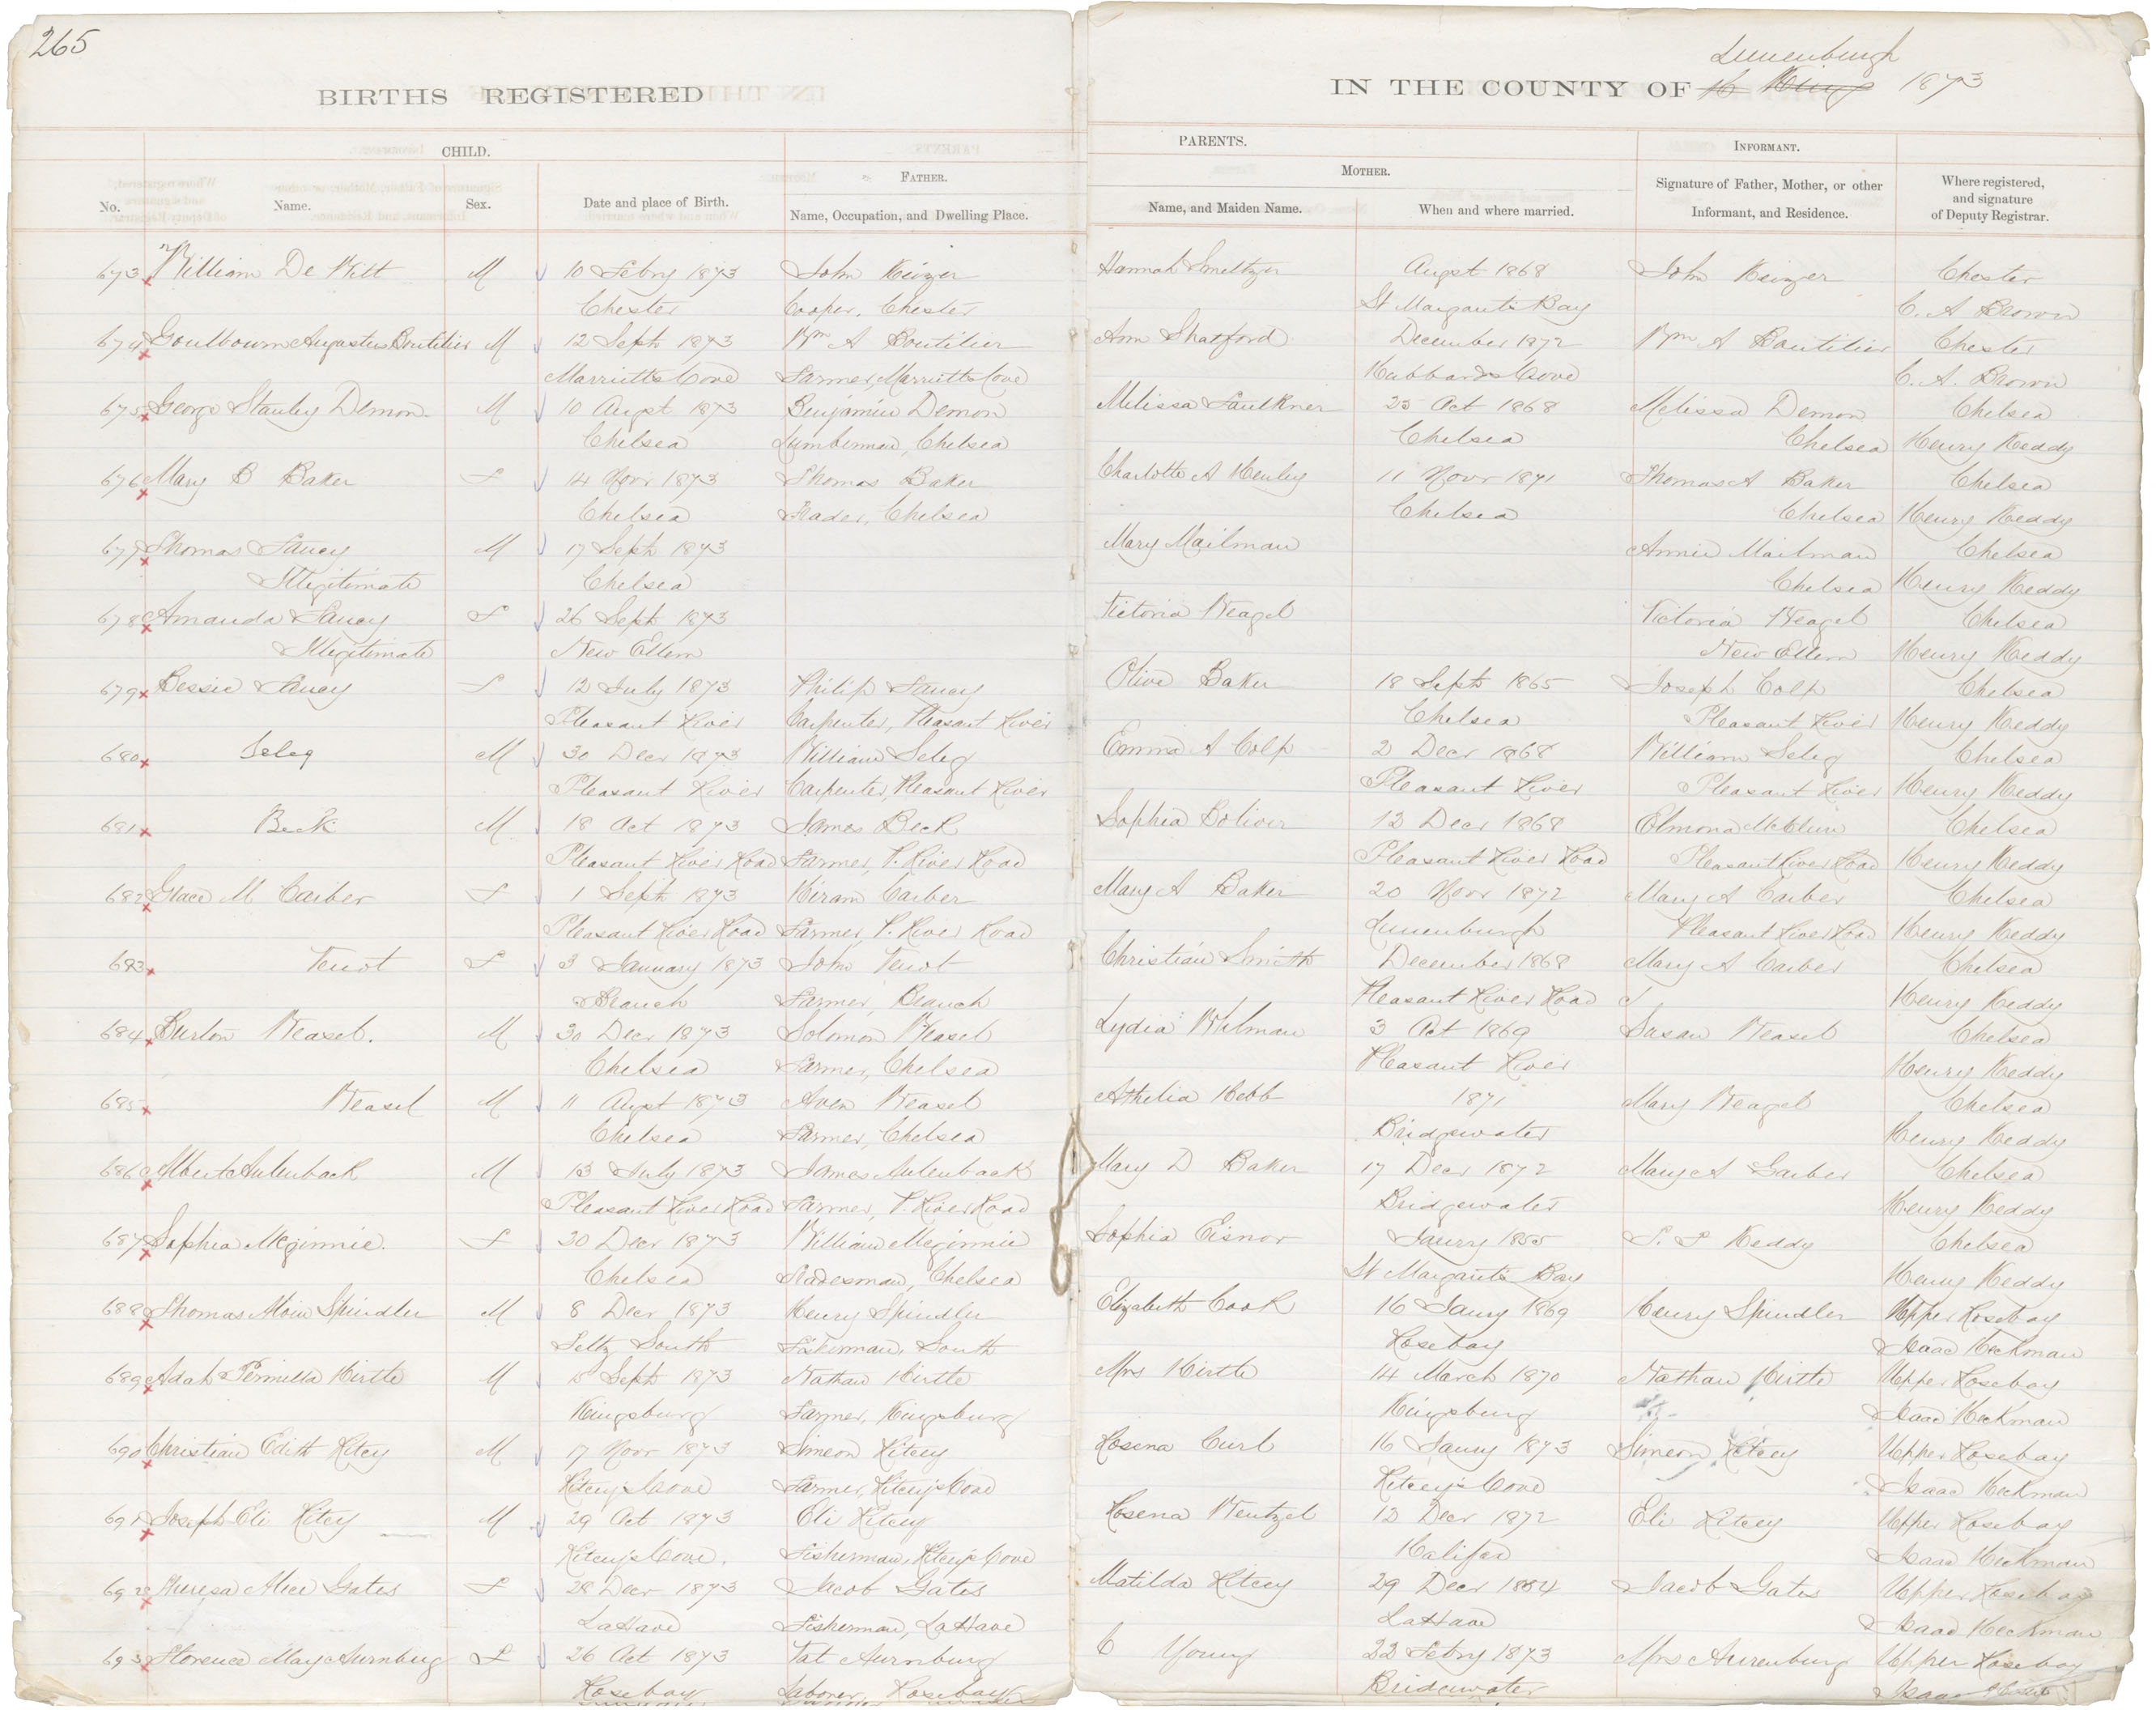 265
BIRTHS REGISTERED
IN THE COUNTY OF Lunenburgh 1873
CHILD.
PARENTS.
INFORMANT.
FATHER.
MOTHER.
No. Name. Sex. Date and place of Birth. Name, Occupation, and Dwelling Place. Name, and Maiden Name. When and where married. Signature of Father, Mother, or other Informant, and Residence. Where registered, and signature of Deputy Registrar.
673 William De Witt M 10 Febry 1873 John Keizer Hannah Smeltzer Augst 1868 John Keizer Chester
Chester Cooper, Chester St Margarets Bay C. A Brown
674 Goulbourn Augustus Boutilier M 12 Septr 1873 Wm A Boutilier Ann Shatford December 1872 Wm A Boutilier Chester
Marriotts Cove Farmer, Marriotts Cove Hubbards Cove C. A. Brown
675 George Stanley Demon M 10 Augst 1873 Benjamin Demon Melissa Faulkner 25 Oct 1868 Melissa Demon Chelsea
Chelsea Lumberman, Chelsea Chelsea Chelsea Henry Keddy
676 Mary B Baker F 14 Novr 1873 Thomas Baker Charlotte A Henley 11 Novr 1871 Thomas A Baker Chelsea
Chelsea Trader, Chelsea Chelsea Chelsea Henry Keddy
677 Thomas Fancy M 17 Septr 1873 Mary Mailman Annie Mailman Chelsea
Illegitimate Chelsea Chelsea Henry Keddy
678 Amanda Fancy F 26 Septr 1873 Victoria Weagel Victoria Weagel Chelsea
Illegitimate New Ellem New Ellem Henry Keddy
679 Bessie Fancy F 12 July 1873 Philip Fancy Olive Baker 18 Septr 1865 Joseph Colp Chelsea
Pleasant River Carpenter, Pleasant River Chelsea Pleasant River Henry Keddy
680 Seleg M 30 Decr 1873 William Seleg Emma A Colp 2 Decr 1868 William Seleg Chelsea
Pleasant River Carpenter, Pleasant River Pleasant River Pleasant River Henry Keddy
681 Beck M 18 Oct 1873 James Beck Sophia Boliver 12 Decr 1868 Elmona McClun Chelsea
Pleasant River Road Farmer, P. River Road Pleasant River Road Pleasant River Road Henry Keddy
682 Grace M Carber F 1 Septr 1873 Hiram Carber Mary A Baker 20 Novr 1872 Mary A Carber Chelsea
Pleasant River Road Farmer, P. River Road Lunenburgh Pleasant River Road Henry Keddy
683 Venot F 3 January 1873 John Venot Christian Smith December 1868 Mary A Carber Chelsea
Branch Farmer, Branch Pleasant River Road Henry Keddy
684 Burton Weasel. M 30 Decr 1873 Solomon Weasel Lydia Whlman 3 Oct 1869 Susan Weasel Chelsea
Chelsea Farmer, Chelsea Pleasant River Henry Keddy
685 Weasel M 11 Augst 1873 Aven Weasel Athelia Hebb 1871 Mary Weagel Chelsea
Chelsea Farmer, Chelsea Bridgewater Henry Keddy
686 Albert Aulenback M 13 July 1873 James Aulenback Mary D Baker 17 Decr 1872 Mary A Garber Chelsea
Pleasant River Road Farmer, P. River Road Bridgewater Henry Keddy
687 Sophia McGinnie. F 30 Decr 1873 William McGinnie Sophia Eisnor Janry 1855 S. S Keddy Chelsea
Chelsea Tradesman, Chelsea St Margarets Bay Henry Keddy
688 Thomas Spindler M 8 Decr 1873 Henry Spindler Elizabeth Cook 16 Janry 1869 Henry Spindler Upper Rosebay
Feltz South Fisherman, South Rosebay Isaac Heckman
689 Adah Permilla Hirtle M 15 Septr 1873 Nathan Hirtle Mrs Hirtle 14 March 1870 Nathan Hirtle Upper Rosebay
Kingsburg Farmer, Kingsburg Kingsburg Isaac Heckman
690 Christian Edith Ritcey M 17 Novr 1873 Simeon Ritcey Rosena Curl 16 Janry 1873 Simeon Ritcey Upper Rosebay
Ritcey's Cove Farmer, Ritcey's Cove Ritcey's Cove Isaac Heckman
691 Joseph Eli Ritcy M 29 Oct 1873 Eli Ritcey Rosena Wentzel 12 Decr 1872 Eli Ritcey Upper Rosebay
Ritcey's Cove. Fisherman, Ritcey's Cove Halifax Isaac Heckman
692 Theresa Alice Gates F 28 Decr 1873 Jacob Gates Matilda Ritcey 29 Decr 1864 Jacob Gates Upper Rosebay
LaHave Fisherman, LaHave LaHave Isaac Heckman
693 Florence May Aurnburg F 26 Oct 1873 Tat Aurnburg C Young 22 Febry 1873 Mrs Aurenburg Upper Rosebay
Rosebay Laborer, Rosebay Bridgewater Isaac